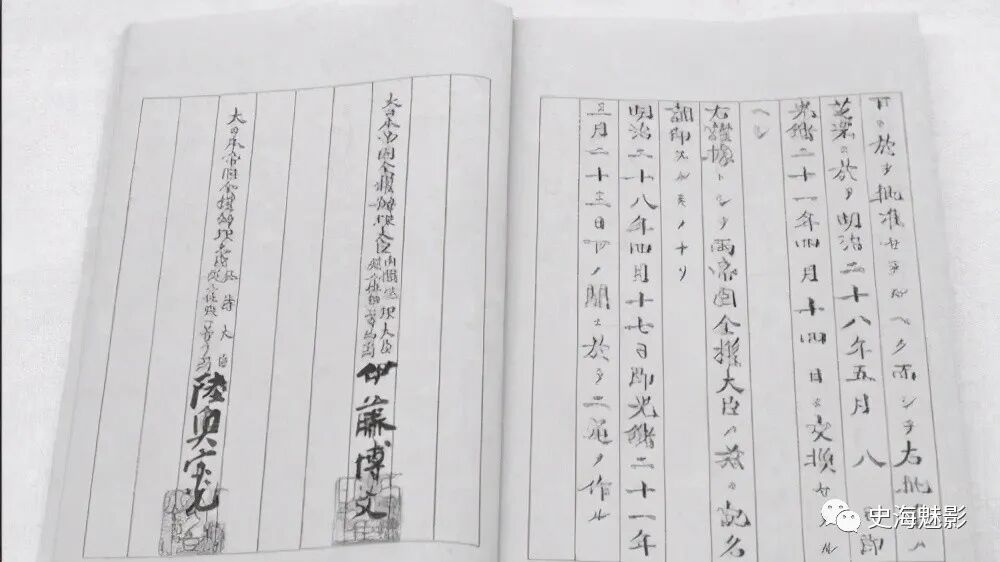 下ニ於テ批准セラルヘク而シテ右批
芝罘ニ於テ明治二十八年五月八 即
光緒二十一年四月十四日ニ交換セラル
ヘシ
右證據トシテ兩帝國全權大臣ハ茲ニ記名
調印スルモノナリ
明治二十八年四月十七日即光緒二十一年
三月二十三日下ノ關ニ於テ二通ヲ作ル
大日本帝國全權辨理大臣內閣總理大臣從二位勳一等伯爵 伊藤博文
大日本帝國全權辨理大臣外務大臣從二位勳一等子爵 陸奧宗光
史海魅影